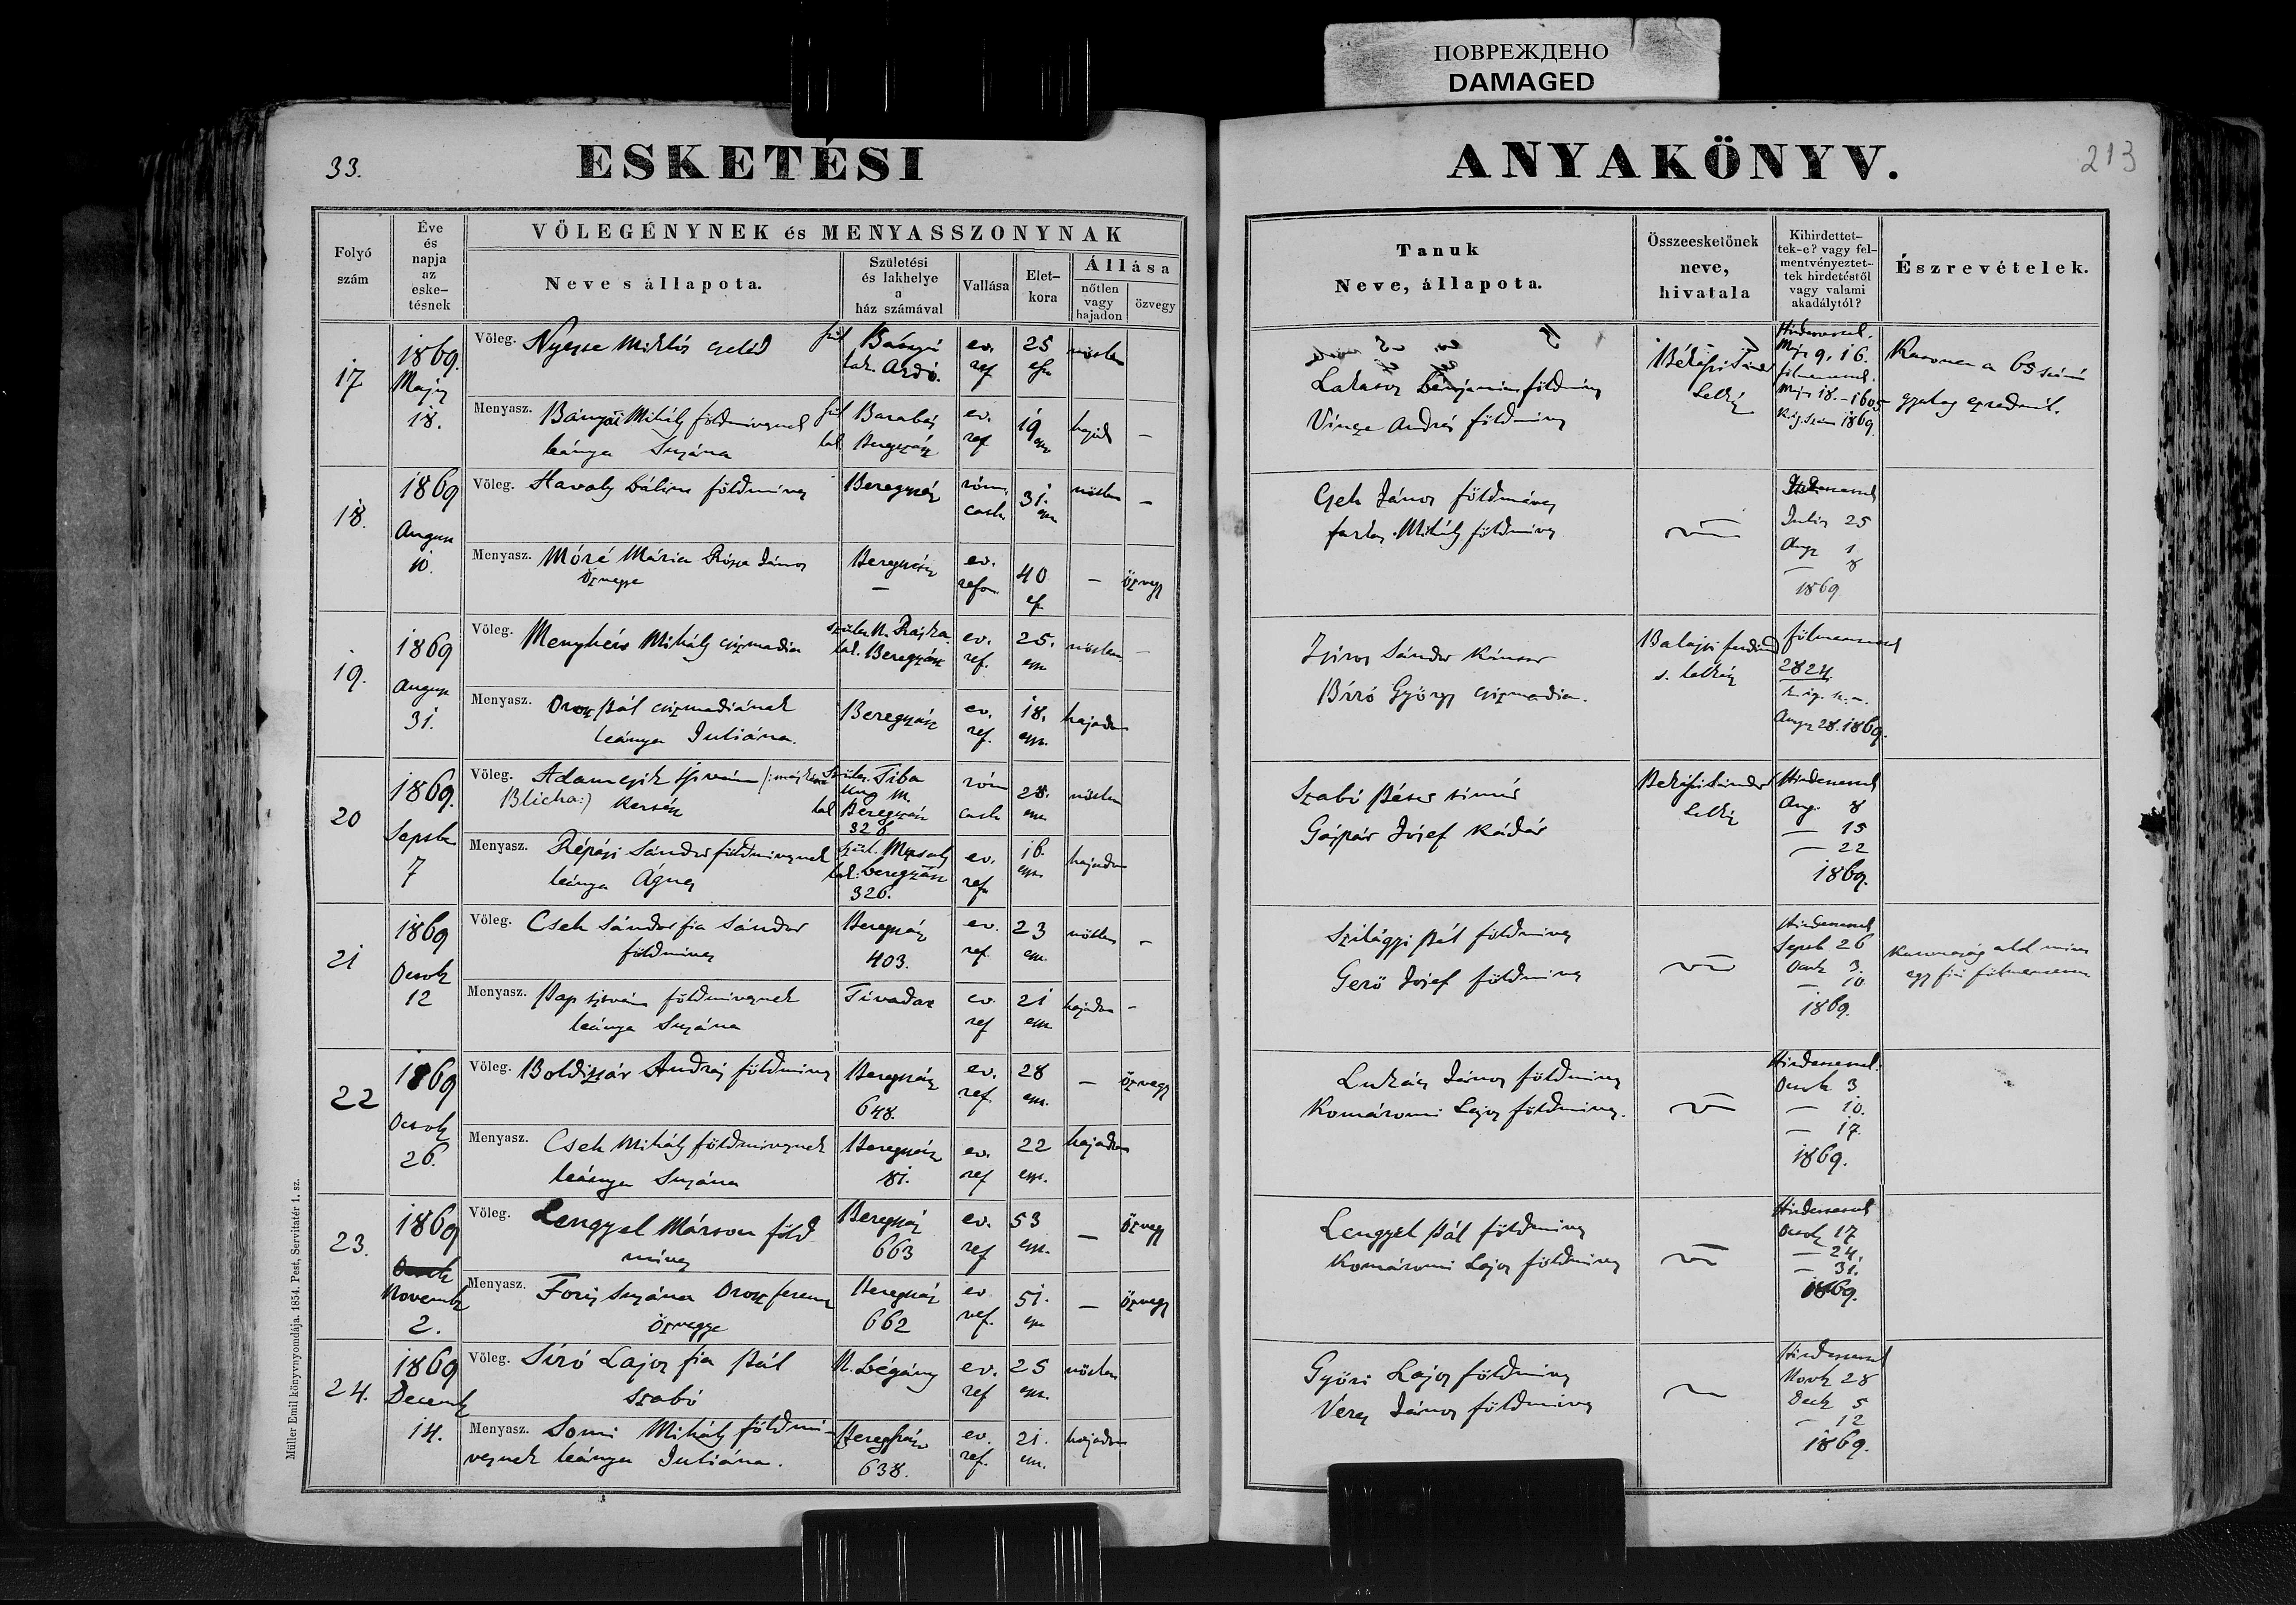 ПОВРЕЖДЕНО
DAMAGED
33.
ESKETÉSI
Folyó
szám
Éve
és
napja
az
eske-
tésnek
VŐLEGÉNYNEK és MENYASSZONYNAK
Neve s állapota.
Születési
és lakhelye
a
ház számával
Vallása
Élet-
kora
Állása
nőtlen
vagy
hajadon
özvegy
17
1869.
Maj
18.
Vőleg. Nyegre Miklós cseléd
lak. Ardó.
ev.
ref
25
nőtlen
Menyasz. Bányai Mihály földmivesnek
leánya Suzána
Barabás
Beregszász
ev.
ref
19
hajad
–
18.
1869
August
10.
Vőleg. Havaly Bálint földmives
Beregszász
róm.
cath.
31.
nőtlen
–
Menyasz. Móré Mária Rózsa János
özvegye
Beregszász
–
ev.
refor.
40
–
özvegy
19.
1869
August
31.
Vőleg. Menyhért Mihály csizmadia
lak. Beregszász
ev.
ref.
25.
nőtlen
–
Menyasz. Orosz Pál csizmadiának
leánya Juliána.
Beregszász
ev.
ref.
18.
hajadon
20
1869.
Septb
7
Vőleg. Adamcsik István
Blicha:)
Szület. Tiba
Ung m.
lak Beregszász
326
róm
cath
28.
nőtlen
Menyasz. Répási Sándor földmivesnek
leánya Agnes
lak. beregszász
326.
ev.
ref.
16.
hajadon
21
1869
Octob
12
Vőleg. Cseh Sándor fia Sándor
földmives
Beregszász
403.
ev.
ref.
23
nőtlen
–
Menyasz. Pap István földmivesnek
leánya Suzána
Tivadar
ev.
ref
21
hajadon
–
22
1869
Octob
26.
Vőleg. Boldizsár András földmives
Beregszász
648.
ev.
ref.
28
–
özvegy
Menyasz. Cseh Mihály földmivesnek
leánya Suzána
Beregszász
81.
ev.
ref
22
hajadon
23.
1869
Octob
Novemb
2.
Vőleg. Lengyel Márton föld
mives
Beregszász
663
ev.
ref
53
–
özvegy
Menyasz. Foris Suzána Orosz ferencz
özvegye
Beregszász
662
ev
ref.
51.
–
özvegy
24.
1869
Decemb
14.
Vőleg. Siró Lajos fia Pál
szabó
N. Bégány
ev.
ref
25
nőtlen
Menyasz. Somi Mihály földmi-
vesnek leánya Juliána.
Beregszász
638.
ev.
ref.
21.
hajadon
Müller Emil könyvnyomdája. 1854. Pest, Servitatér 1. sz.
ANYAKÖNYV.
213
Tanuk
Neve, állapota.
Összeesketőnek
neve,
hivatala
Kihirdettet-
tek-e? vagy fel-
mentvényeztet-
tek hirdetéstől
vagy valami
akadálytól?
Észrevételek.
Lakatos Benjamin földmives
Vincze András földmives
Lelkész
Maj 9. 16.
Maj 18. – 1605
1869.
Katona a 65 számú
gyalog ezrednél.
Cseh János földmives
farkas Mihály földmives
Julis 25
Aug 1
8
1869
Sándor
Biró György csizmadia.
Balajti
s. lelkész
fölmentetett
2824
Aug 28. 1869.
Szabó Péter timár
Gáspár József kádár
Békési Sándor
Lelkész
Hirdettetett
Aug. 8
— 15
— 22
1869.
Szilágyi Pál földmives
Gerő József földmives
Hirdettetett
Septb 26
Octob 3.
— 10
1869.
Lukács János földmives
Komáromi Lajos földmives.
Hirdettetett.
Octob 3
— 10.
— 17.
1869.
Lengyel Pál földmives
Komáromi Lajos földmives
Hirdettetett
Octob 17
— 24.
— 31.
1869.
Győri Lajos földmives
Veres János földmives
Hirdettetett
Novb 28
Decb 5
— 12
1869.